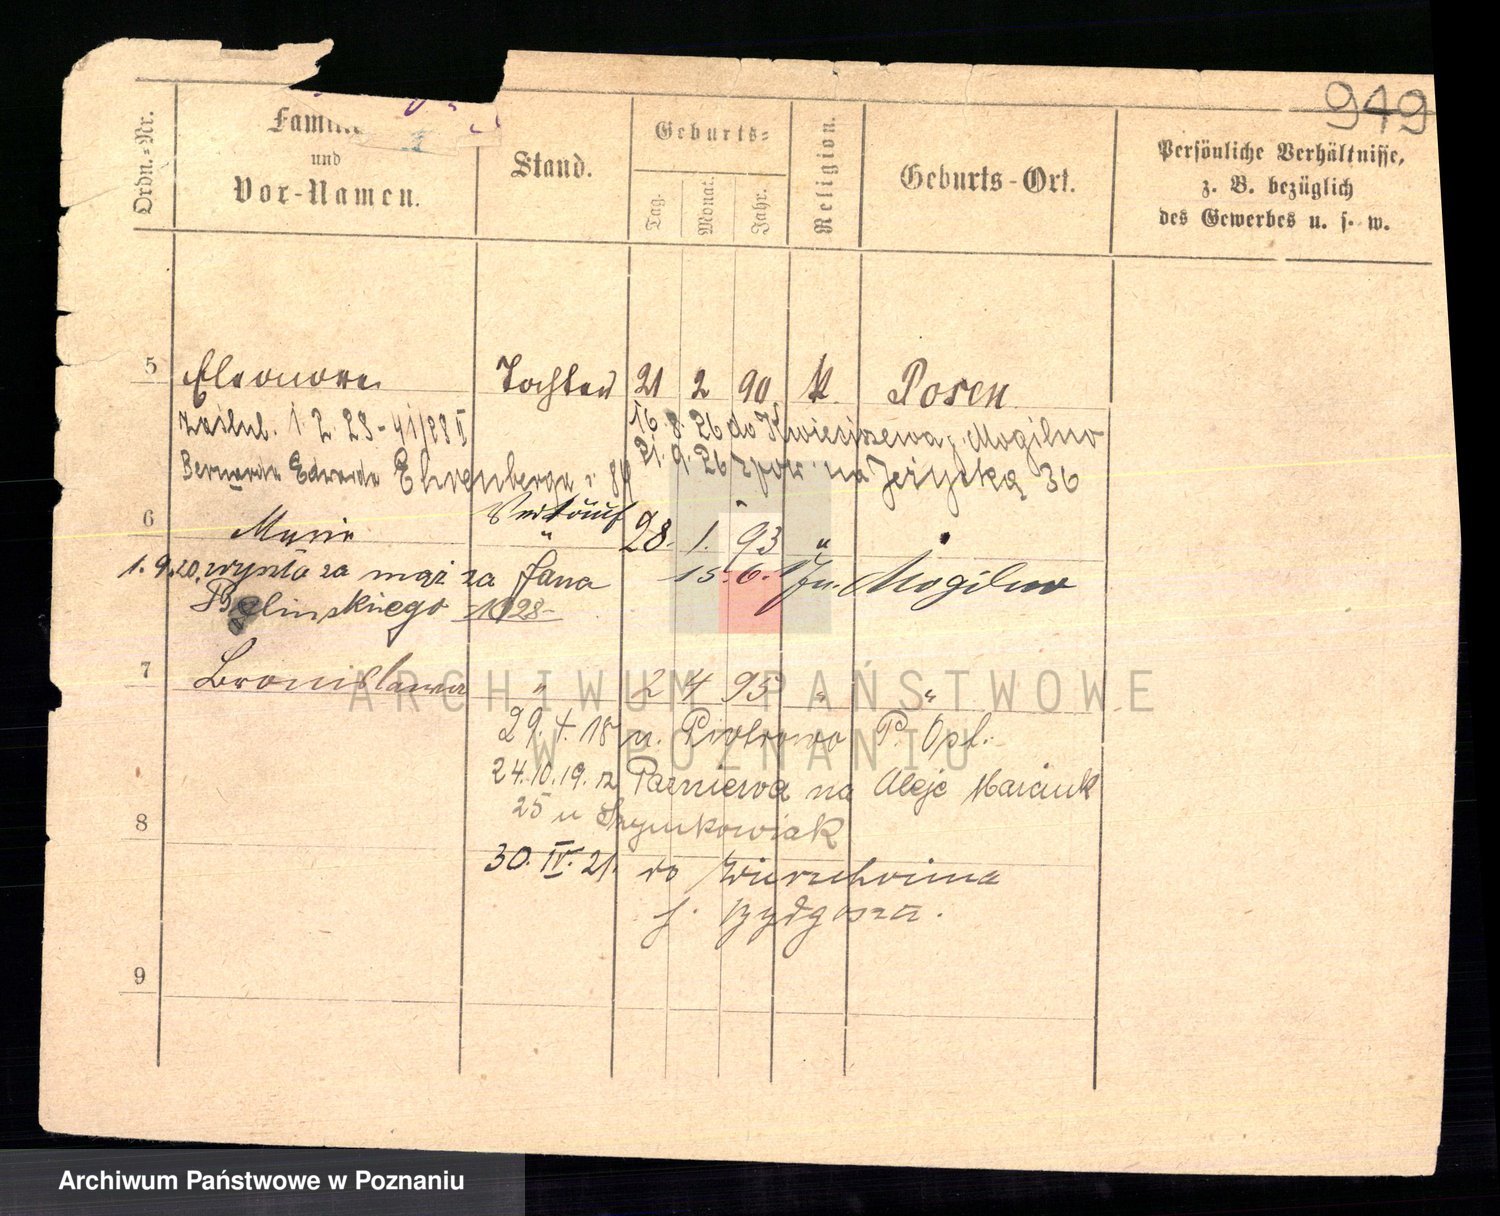 949
Ordn.-Nr.
und
Vor-Namen.
Stand.
Geburts-
Tag.
Monat.
Jahr.
Religion.
Geburts-Ort.
Persönliche Verhältnisse,
z. B. bezüglich
des Gewerbes u. s. w.
5 Eleonore Tochter 21 2 90 k Posen
zaślub. 1. 2. 23 - 41/23 II 16. 8. 26 do Kwieciszewa, Mogilno
Bernarda Edwarda Ehrenberga 21. 9. 26 na Jeżycką 36
6 Marie " 28. 1. 93 "
1. 9. 20. wyszła za mąż za Jana 15. 6. Mogilno
Belinskiego
7 Bronislawa " 2 4 95 " "
29. 4. 18 n. Piotrowo P. Opl.
24. 10. 19. z na Aleje Marcink
25 u Szymkowiak
8
30. IV. 21. do
Bydgoszcz.
9
ARCHIWUM PAŃSTWOWE
W POZNANIU
Archiwum Państwowe w Poznaniu